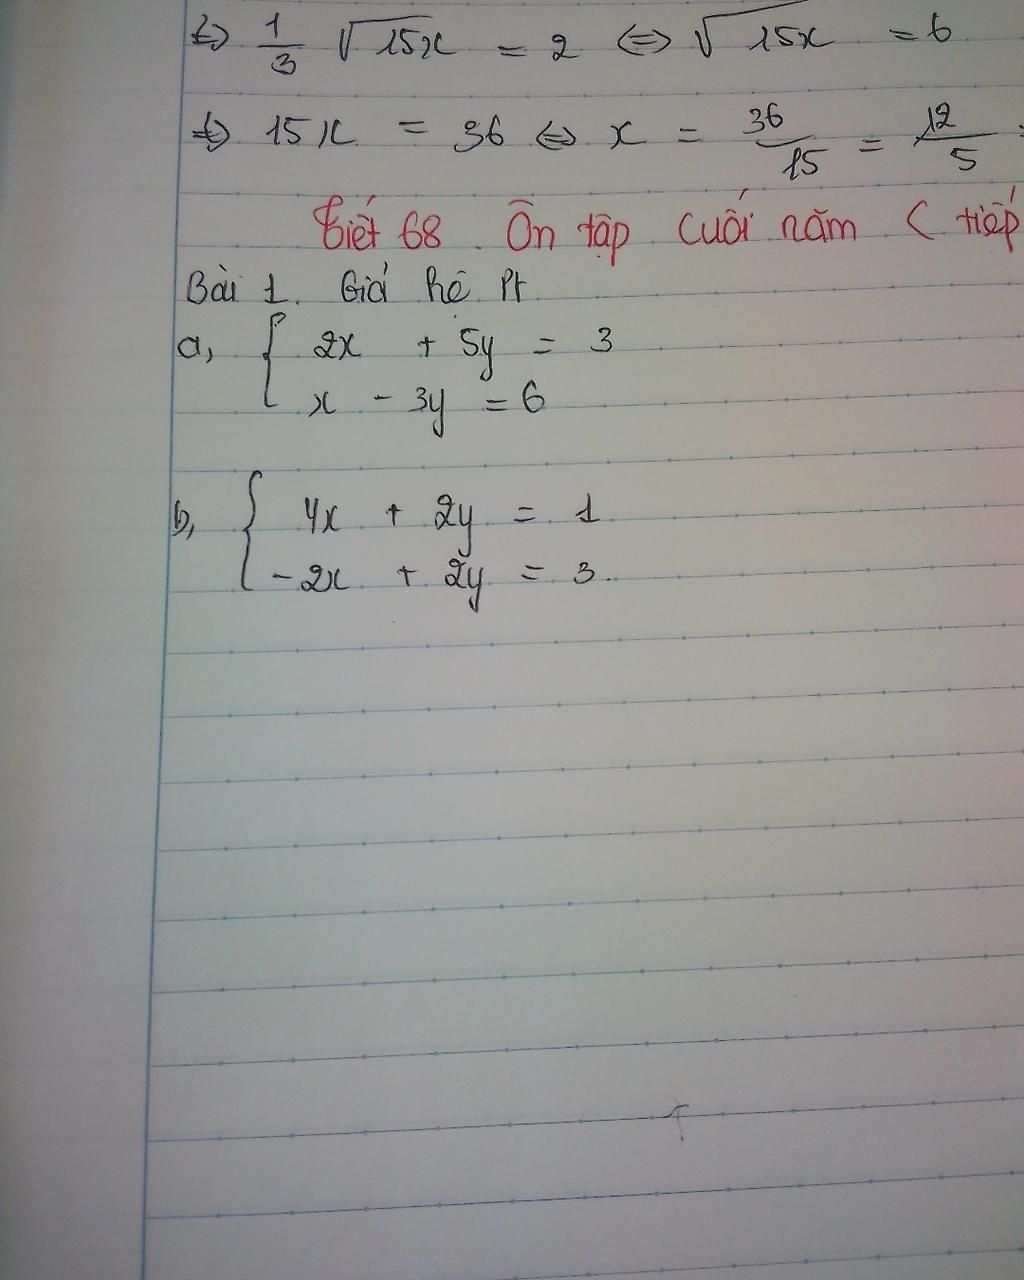 ⇔ 1/3 √15x = 2 ⇔ √15x = 6
⇔ 15x = 36 ⇔ x = 36/15 = 12/5
Tiết 68. Ôn tập cuối năm ( tiếp
Bài 1. Giải hệ Pt
a, { 2x + 5y = 3
x - 3y = 6
b, { 4x + 2y = 1
-2x + 2y = 3.